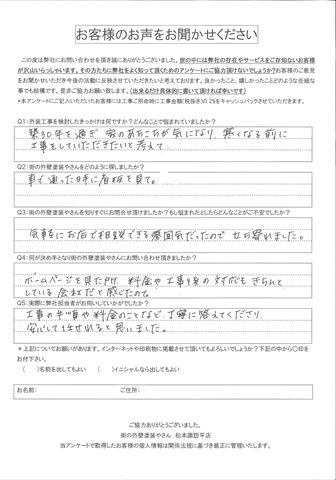 お客様のお声をお聞かせください
この度は弊社にお問い合わせを頂き誠にありがとうございました。世の中には弊社の存在やサービスをご存知ないお客様
が沢山いらっしゃいます。その方たちに弊社をよく知って頂くためのアンケートにご協力頂けないでしょうか?お客様のご意見
をお聞かせいただき今後の活動に反映させていただきたいと考えております。良かったこと、嬉しかったことなどのような些細な
事でも結構です。是非ご協力お願い致します。(出来るだけ具体的に書いて頂ければ幸いです)
*本アンケートにご記入いただいたお客様には工事ご用命時に工事金額(税抜き)の2%をキャッシュバックさせていただきます。
Q1:外装工事を検討したきっかけは何ですか?どんなことで悩まれていましたか?
築30年を過ぎ 家のあちこちが気になり、寒くなる前に
工事をしていただきたいと考えて。
Q2:街の外壁塗装やさんをどのように探しましたか?
車で通った時に看板を見て。
Q3:街の外壁塗装やさんを知りすぐにお問合せ頂けましたか?もし悩まれたとしたらどんなことがご不安でしたか?
気軽にお店で相談できる雰囲気だったので 立ち寄れました。
Q4:何が決め手となり街の外壁塗装やさんにお問い合わせ頂けましたか?
ホームページを見た時、料金や工事後の対応もきちんと
している会社だと感じたので。
Q5:実際に弊社担当者がお伺いしていかがでしたか?
工事の手順や料金のことなど、丁寧に答えてくださり、
安心して任せれると思いました。
*上記についてお願いがあります。インターネットや印刷物に掲載させて頂いてもよろしいでしょうか?下記の中から○印を
お付下さい。
( )名前を出してもよい ( )イニシャルなら出してもよい
お名前: ご住所:
ご協力ありがとうございました。
街の外壁塗装やさん 松本諏訪平店
当アンケートで取得したお客様の個人情報は関係法規に基づき厳正に管理いたします。